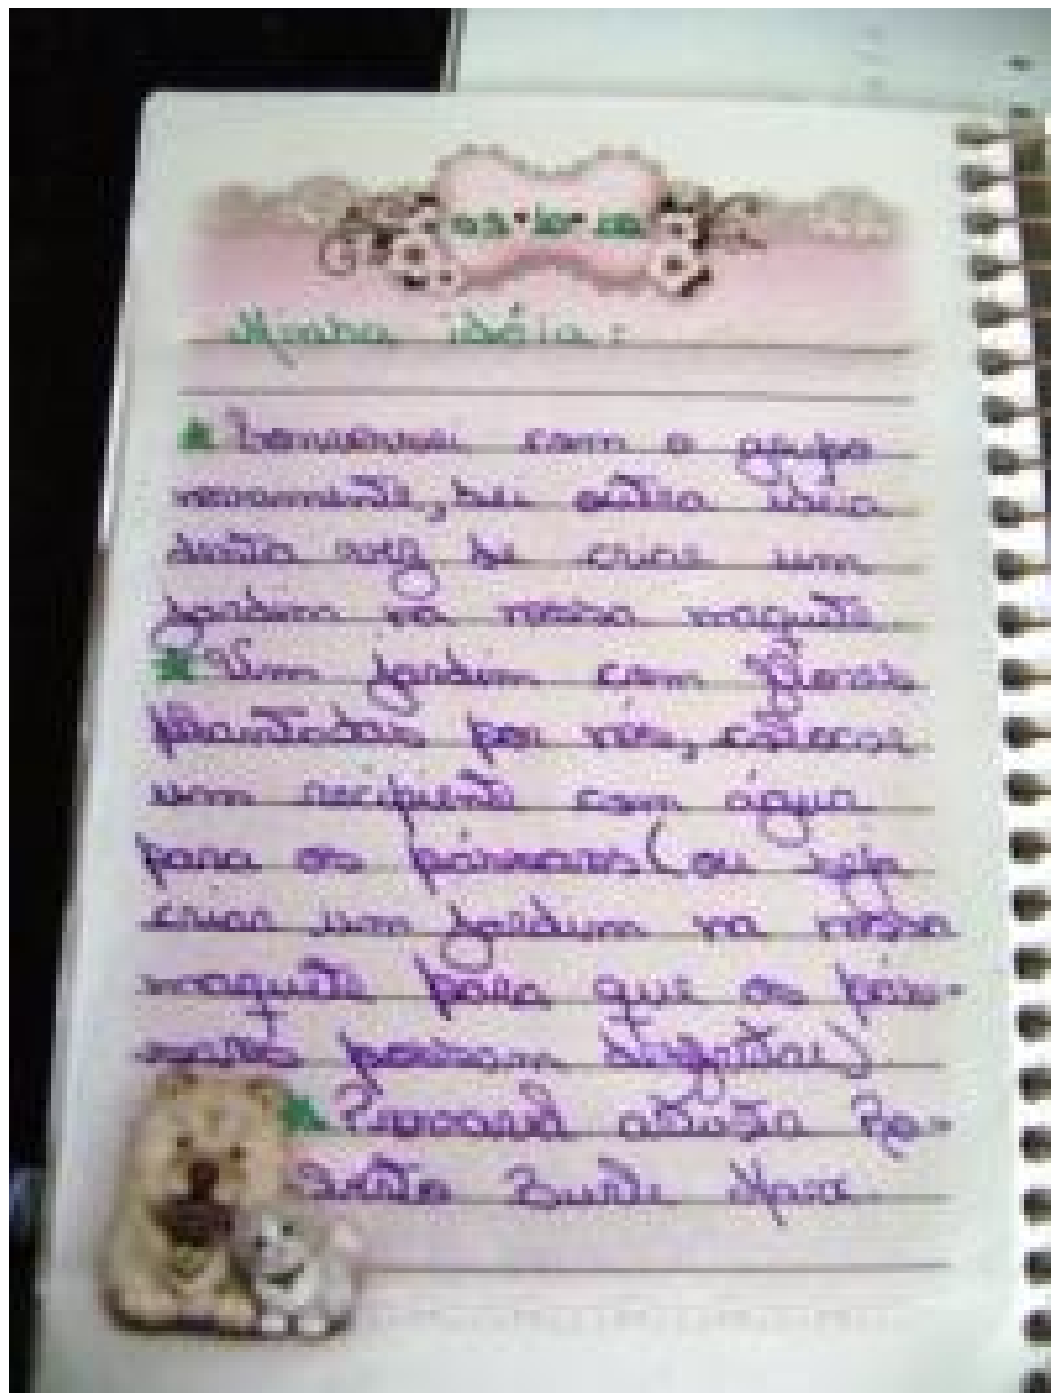 Minha idéia:
Conversei com o grupo
novamente, dei outra ideia
desta vez de criar um
jardim na nossa maquete
Um jardim com flores
plantadas por nós, colocar
um recipiente com água
para os pássaros (ou seja
criar um jardim na nossa
maquete para que os pás-
saros possam
artista Ro-
Burle Marx